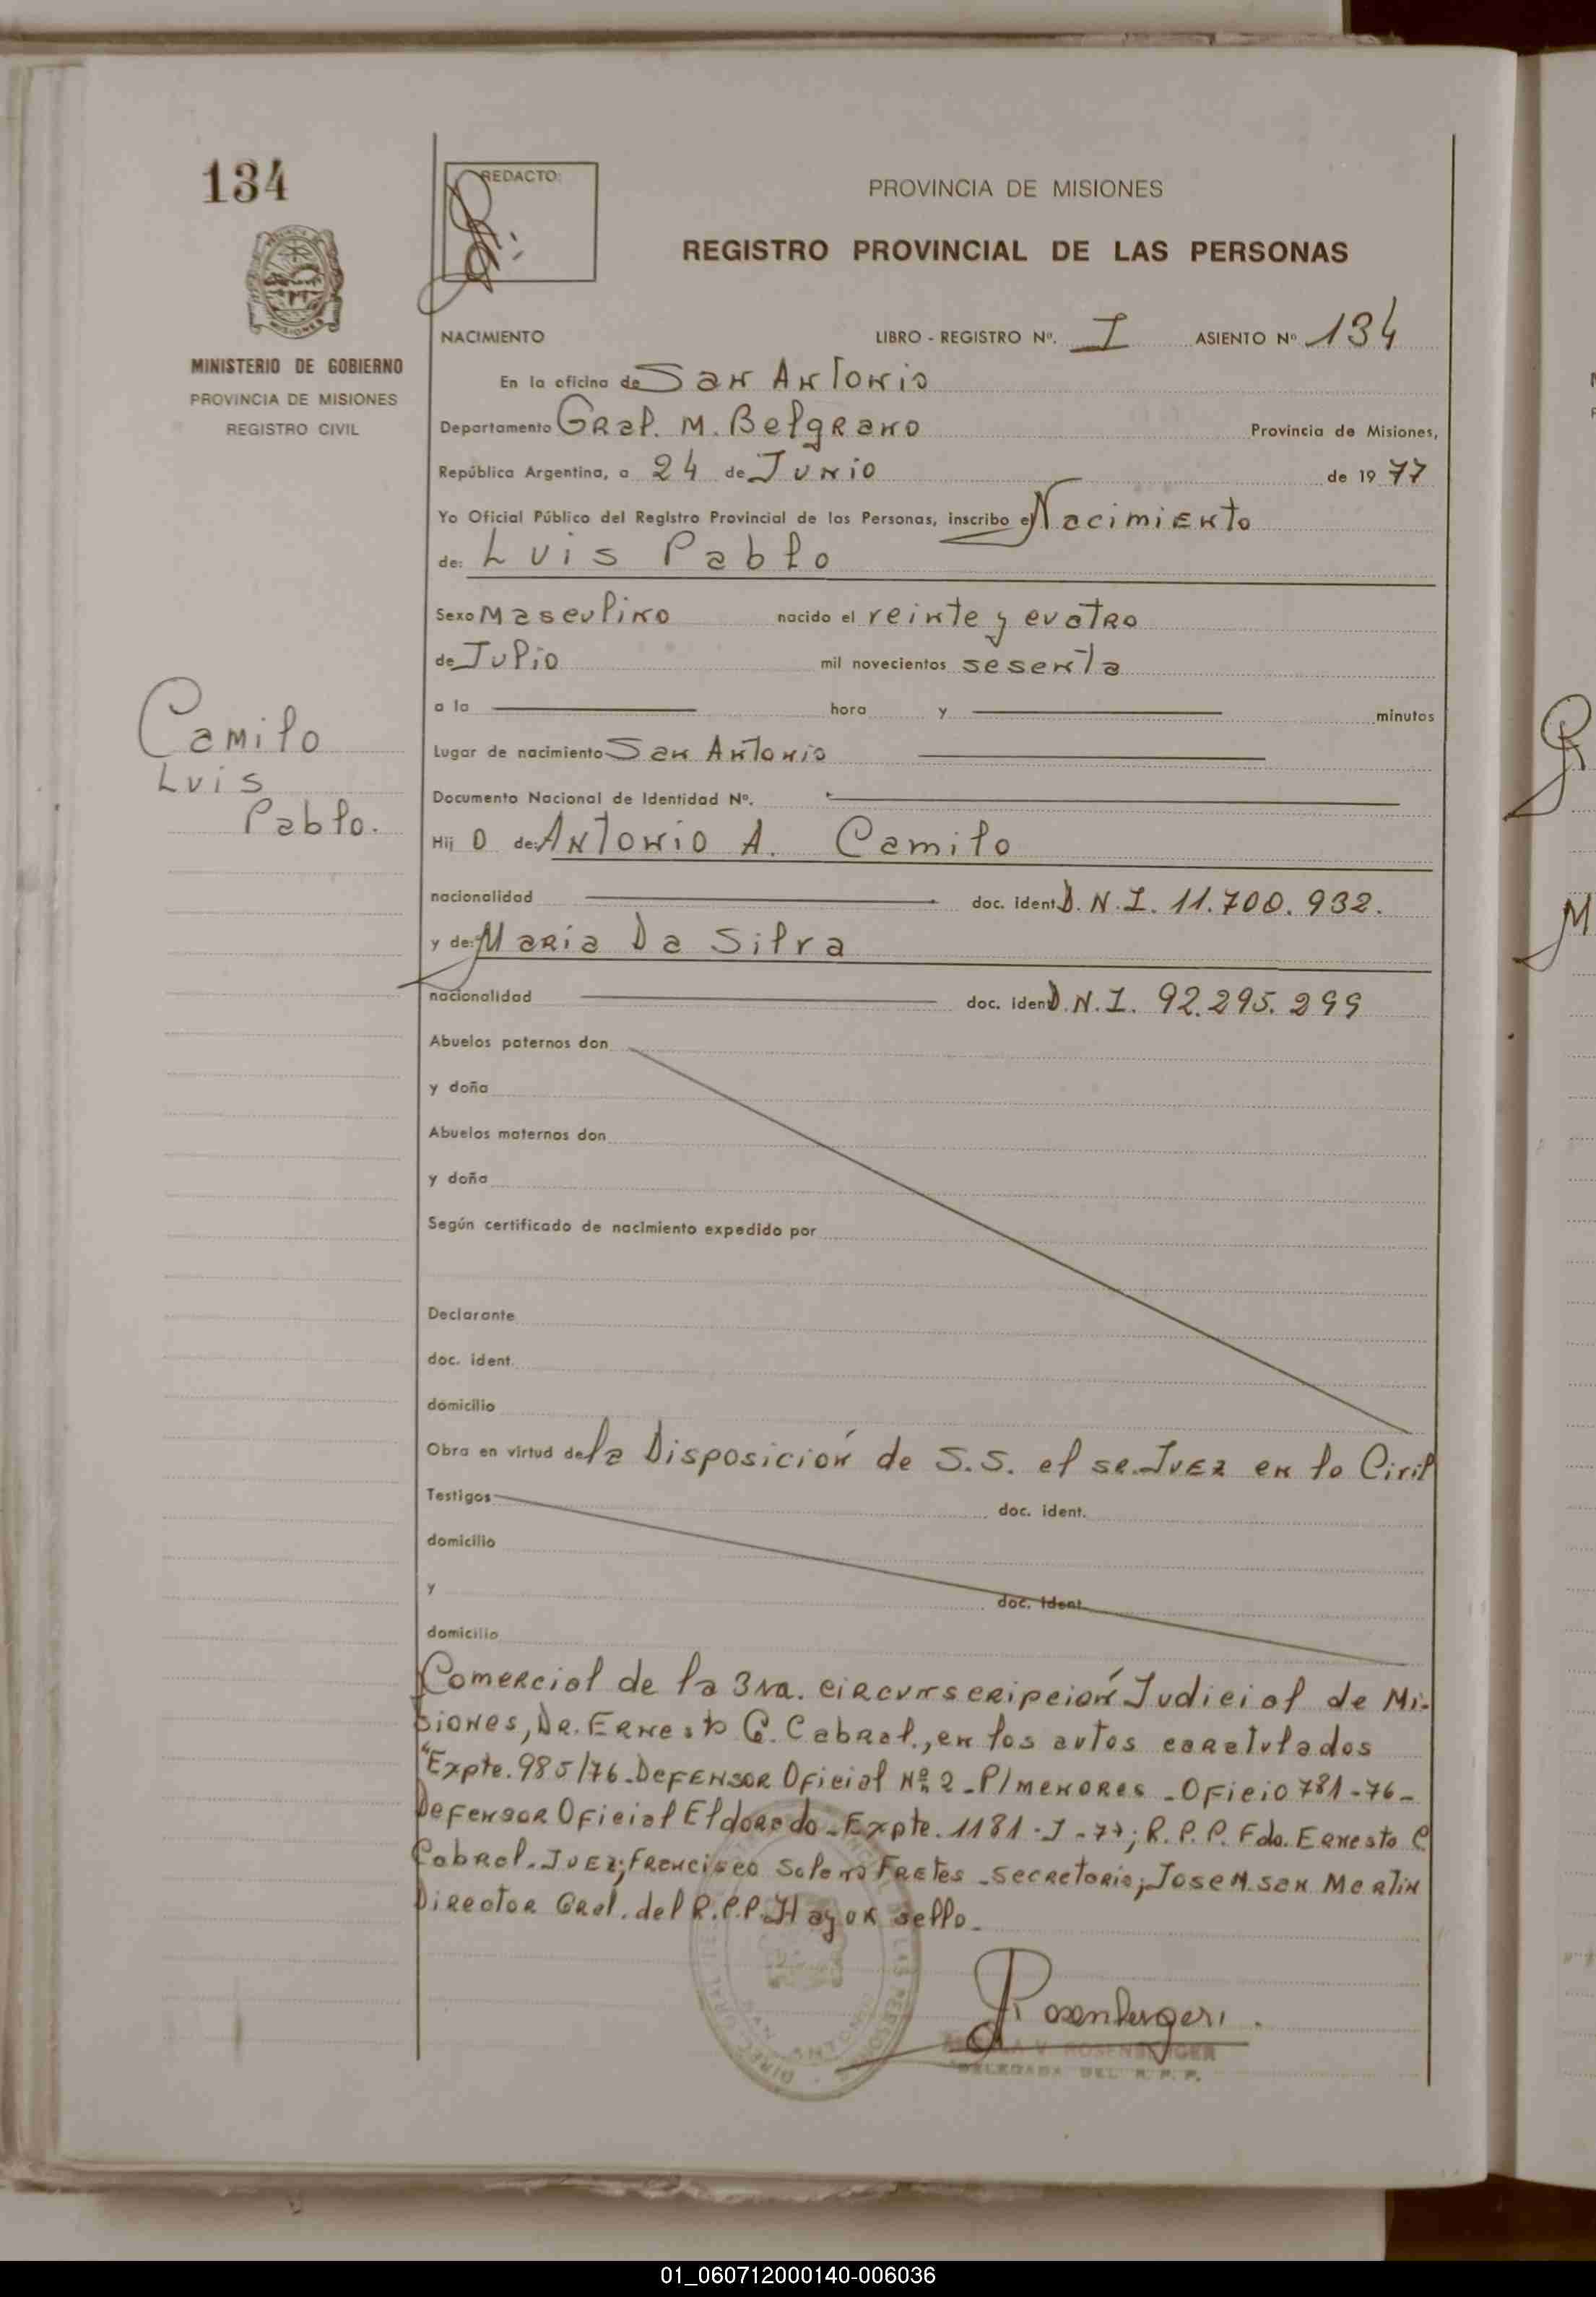 134
REDACTO:
PROVINCIA DE MISIONES
REGISTRO PROVINCIAL DE LAS PERSONAS
MINISTERIO DE GOBIERNO
PROVINCIA DE MISIONES
REGISTRO CIVIL
NACIMIENTO LIBRO - REGISTRO Nº. I ASIENTO Nº 134
En la oficina de San Antonio
Departamento Gral. M. Belgrano Provincia de Misiones,
República Argentina, a 24 de Junio de 1977
Yo Oficial Público del Registro Provincial de las Personas, inscribo el Nacimiento
de: Luis Pablo
Sexo Masculino nacido el veinte y cuatro
de Julio mil novecientos sesenta
a la hora y minutos
Lugar de nacimiento San Antonio
Documento Nacional de Identidad Nº.
Camilo
Luis
Pablo.
Hij o de: Antonio A. Camilo
nacionalidad doc. ident. D.N.I. 11.700.932.
y de: Maria Da Silva
nacionalidad doc. ident. D.N.I. 92.295.299
Abuelos paternos don
y doña
Abuelos maternos don
y doña
Según certificado de nacimiento expedido por
Declarante
doc. ident.
domicilio
Obra en virtud de la Disposición de S.S. el sr. Juez en lo Civil
Testigos doc. ident.
domicilio
y doc. ident.
domicilio
Comercial de la 3ra. circunscripción Judicial de Mi-
siones, Dr. Ernesto G. Cabral., en los autos caratulados
"Expte. 985/76-Defensor Oficial Nº 2-P/menores-Oficio 781-76-
Defensor Oficial Eldorado-Expte. 1181-J-77; R.P.P. Fdo. Ernesto C
Cabral. Juez; Francisco Solano Fretes-secretario; Jose M. san Martin
Director Gral. del R.P.P. Hay un sello.
Rosenberger.
V. ROSENBERGER
DELEGADA DEL R. P. P.
01_060712000140-006036